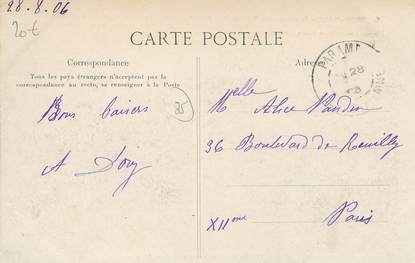 28.8.06
20€
CARTE POSTALE
Correspondance
Tous les pays étrangers n'acceptent pas la
correspondance au recto, se renseigner à la Poste
Adres
PARAMÉ
28
35
Bons baisers
A
Melle Alice
36 Boulevard de Reuilly
XIIeme Paris